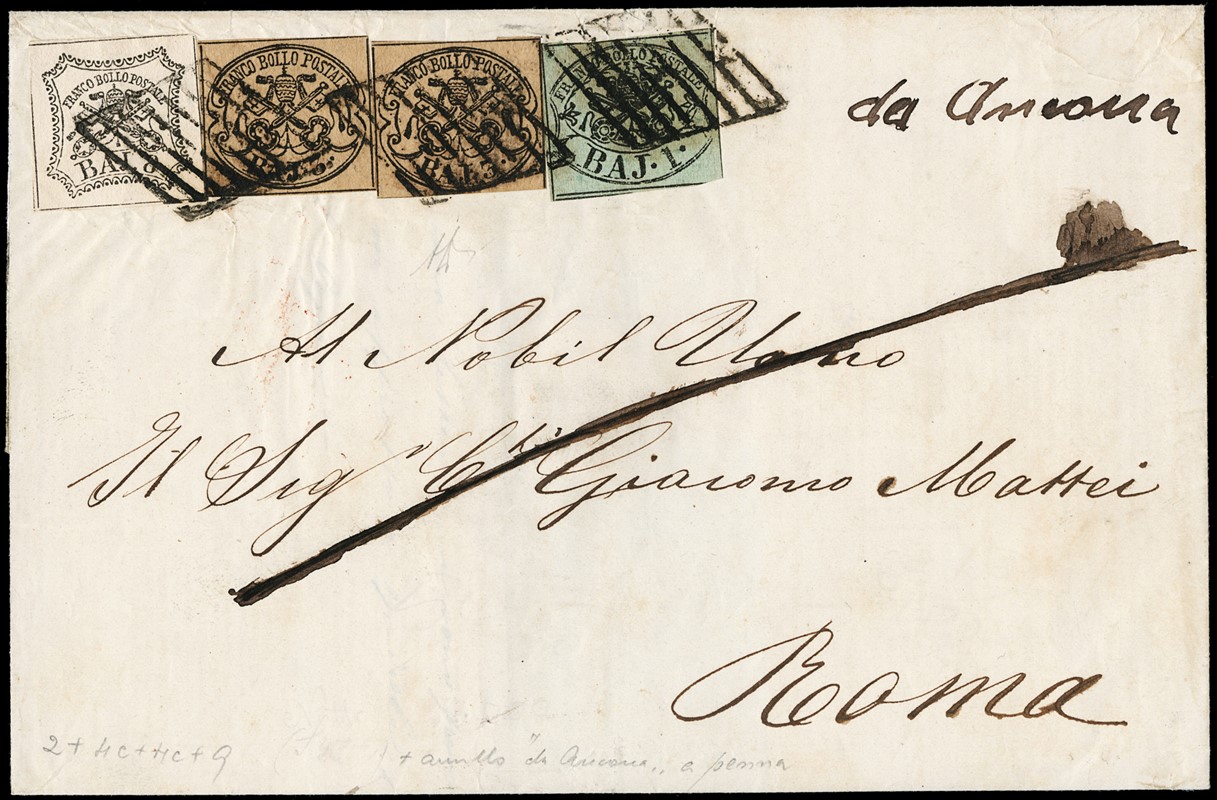 FRANCO BOLLO POSTALE BAJ. 8
FRANCO BOLLO POSTALE BAJ. 3.
FRANCO BOLLO POSTALE BAJ. 3.
FRANCO BOLLO POSTALE BAJ. 1.
da Ancona
Al Nobil Uomo
Il Sig Giacomo Mattei
Roma
2 + 4c + 4c + 9
+ annullo "da Ancona" a penna